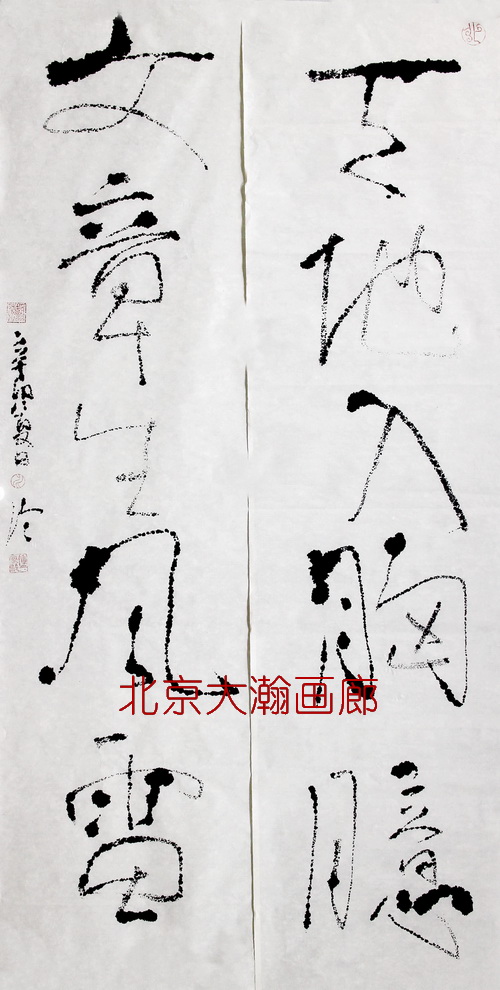 天地入胸臆
文章生风雷
辛卯夏日
北京大瀚画廊